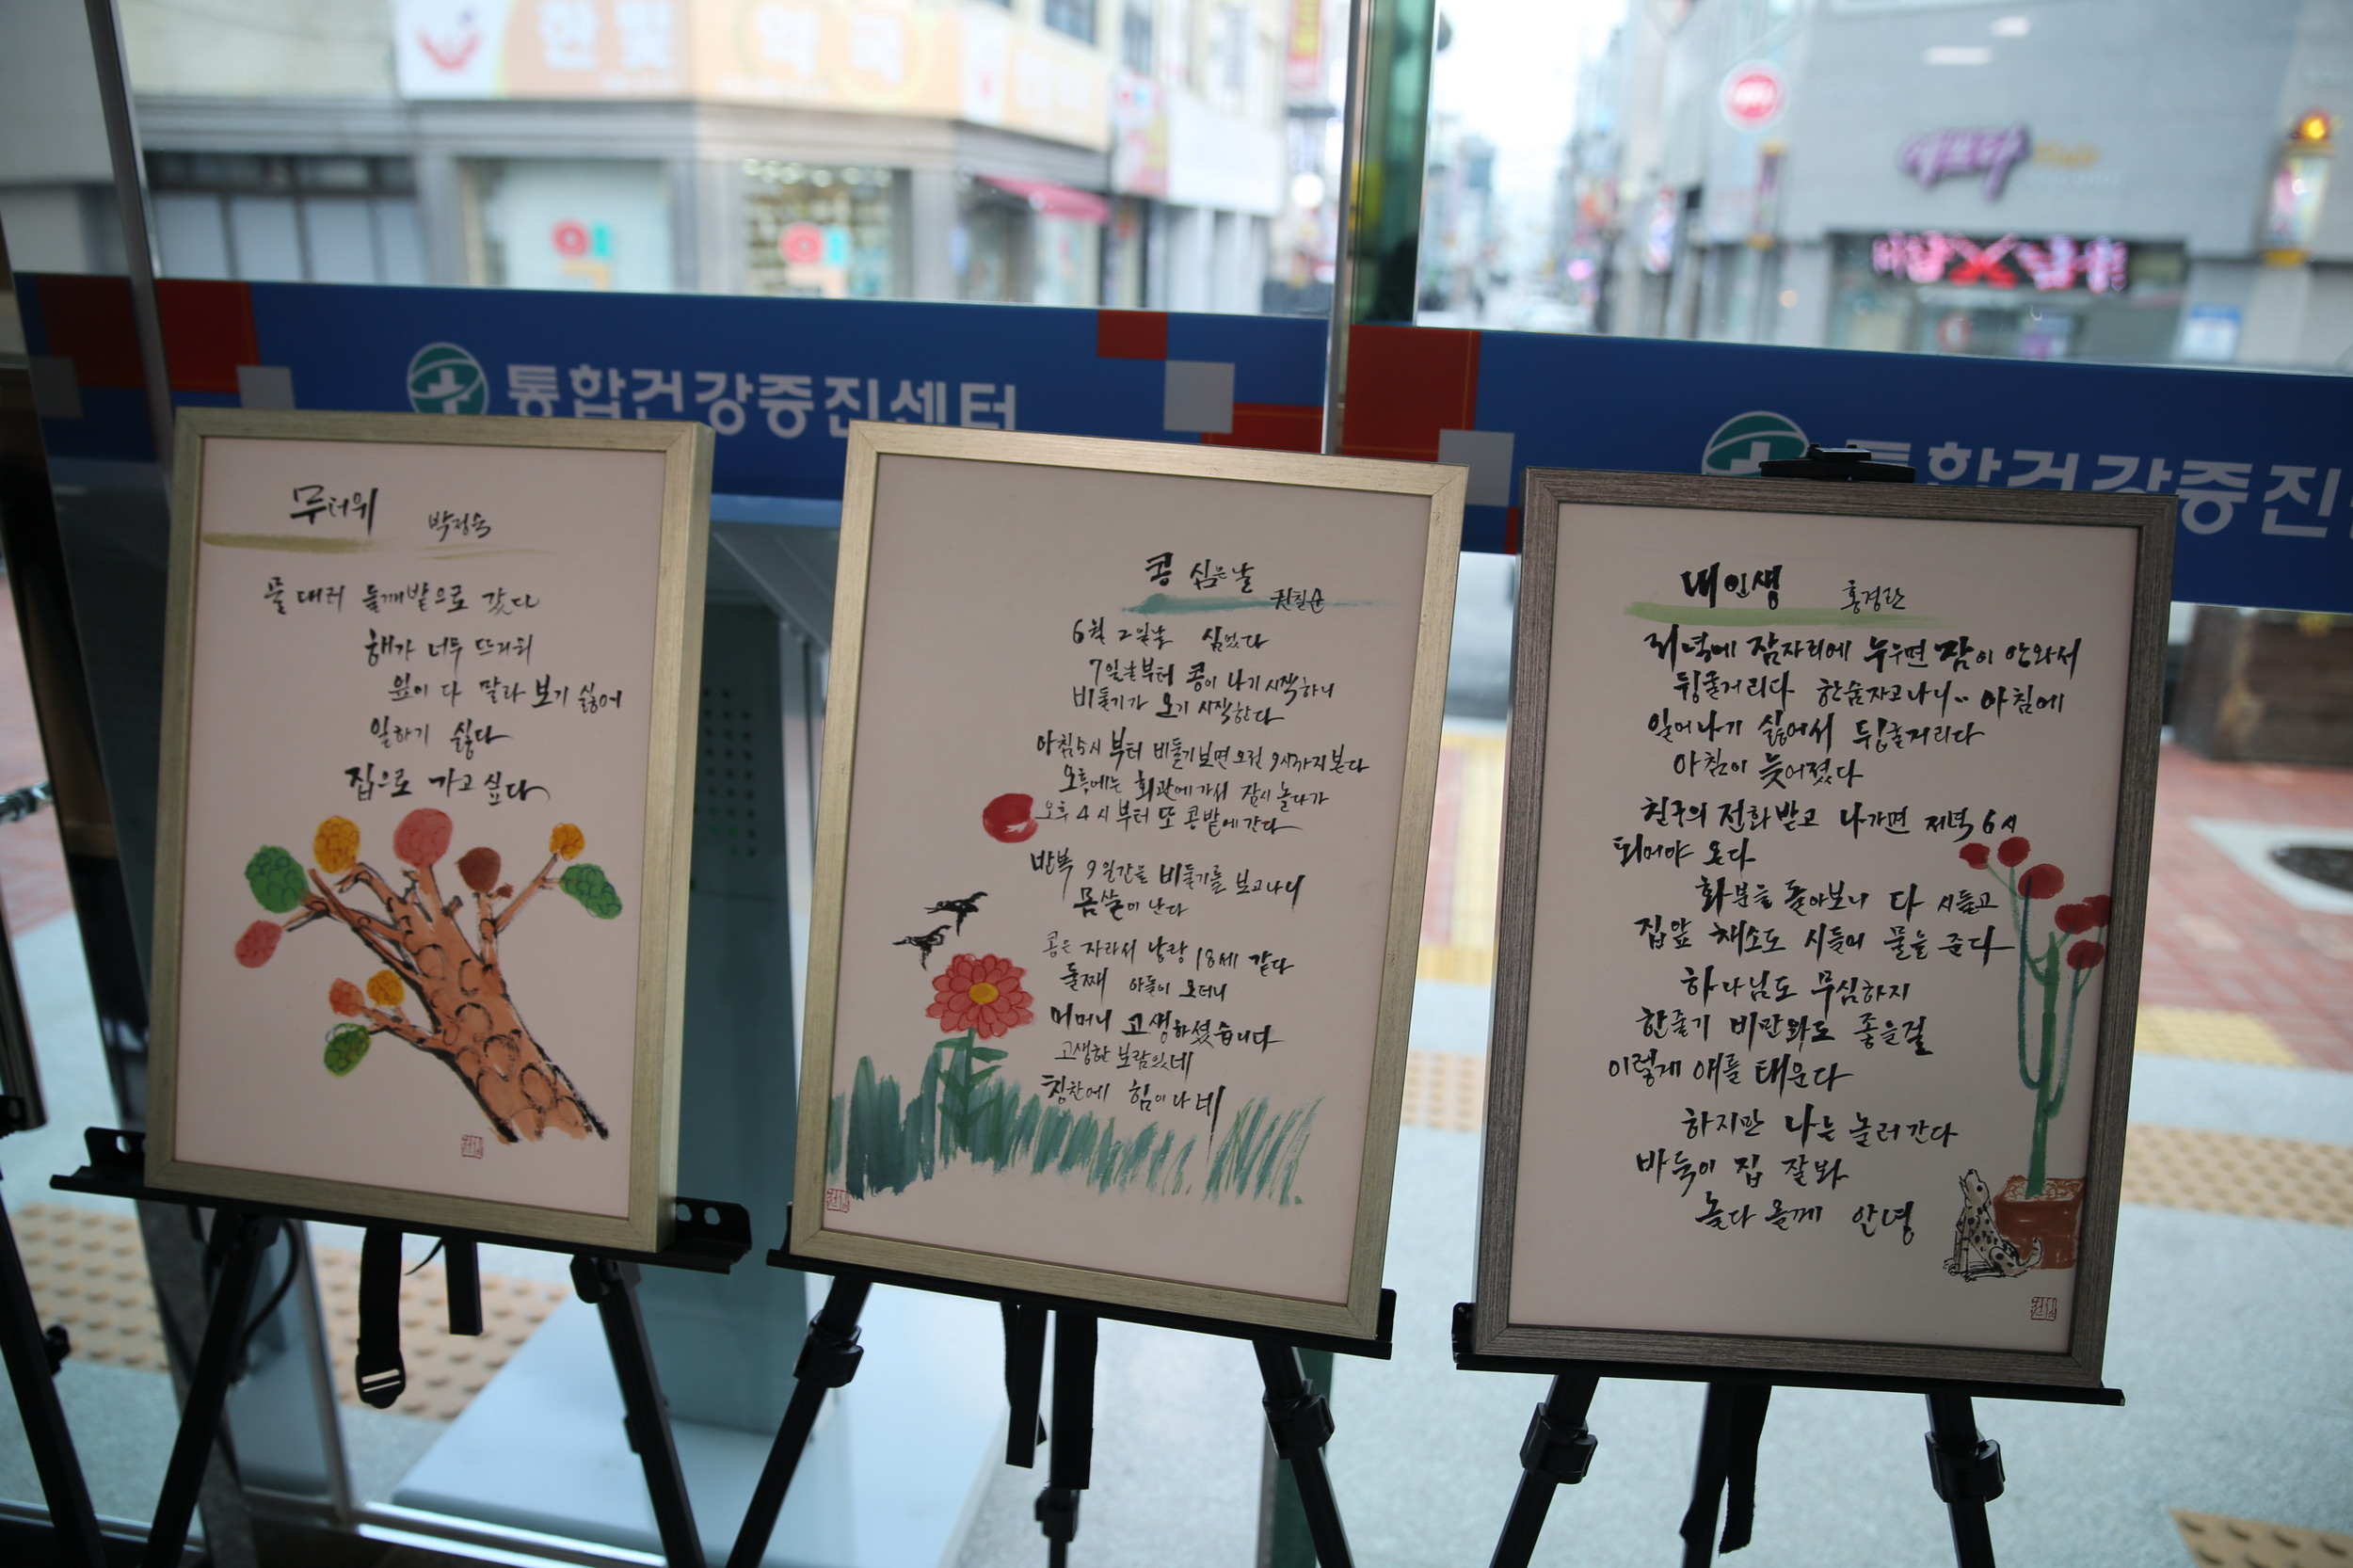 한빛 약국
약
약
통합건강증진센터
통합건강증진
무더위 박정숙
물 대러 들깨밭으로 갔다
해가 너무 뜨거워
잎이 다 말라 보기 싫어
일하기 싫다
집으로 가고 싶다
콩 심은 날
권칠순
6월 2일날 심었다
7일날부터 콩이 나기 시작하니
비둘기가 오기 시작한다
아침 5시 부터 비둘기 보면 오전 9시까지 본다
오후에는 회관에 가서 잠시 놀다가
오후 4시 부터 또 콩밭에 간다
반복 9일간을 비둘기를 보고나니
몸살이 난다
콩은 자라서 낭랑 18세 같다
둘째 아들이 오더니
어머니 고생하셨습니다
고생한 보람있네
칭찬에 힘이 나네
내 인생 홍경란
저녁에 잠자리에 누우면 잠이 안와서
뒹굴거리다 한숨자고나니.. 아침에
일어나기 싫어서 뒹굴거리다
아침이 늦어졌다
친구의 전화 받고 나가면 저녁 6시
되어야 온다
화분을 돌아보니 다 시들고
집앞 채소도 시들어 물을 준다
하나님도 무심하지
한줄기 비만 와도 좋을걸
이렇게 애를 태운다
하지만 나는 놀러간다
바둑이 집 잘봐
놀다 올께 안녕